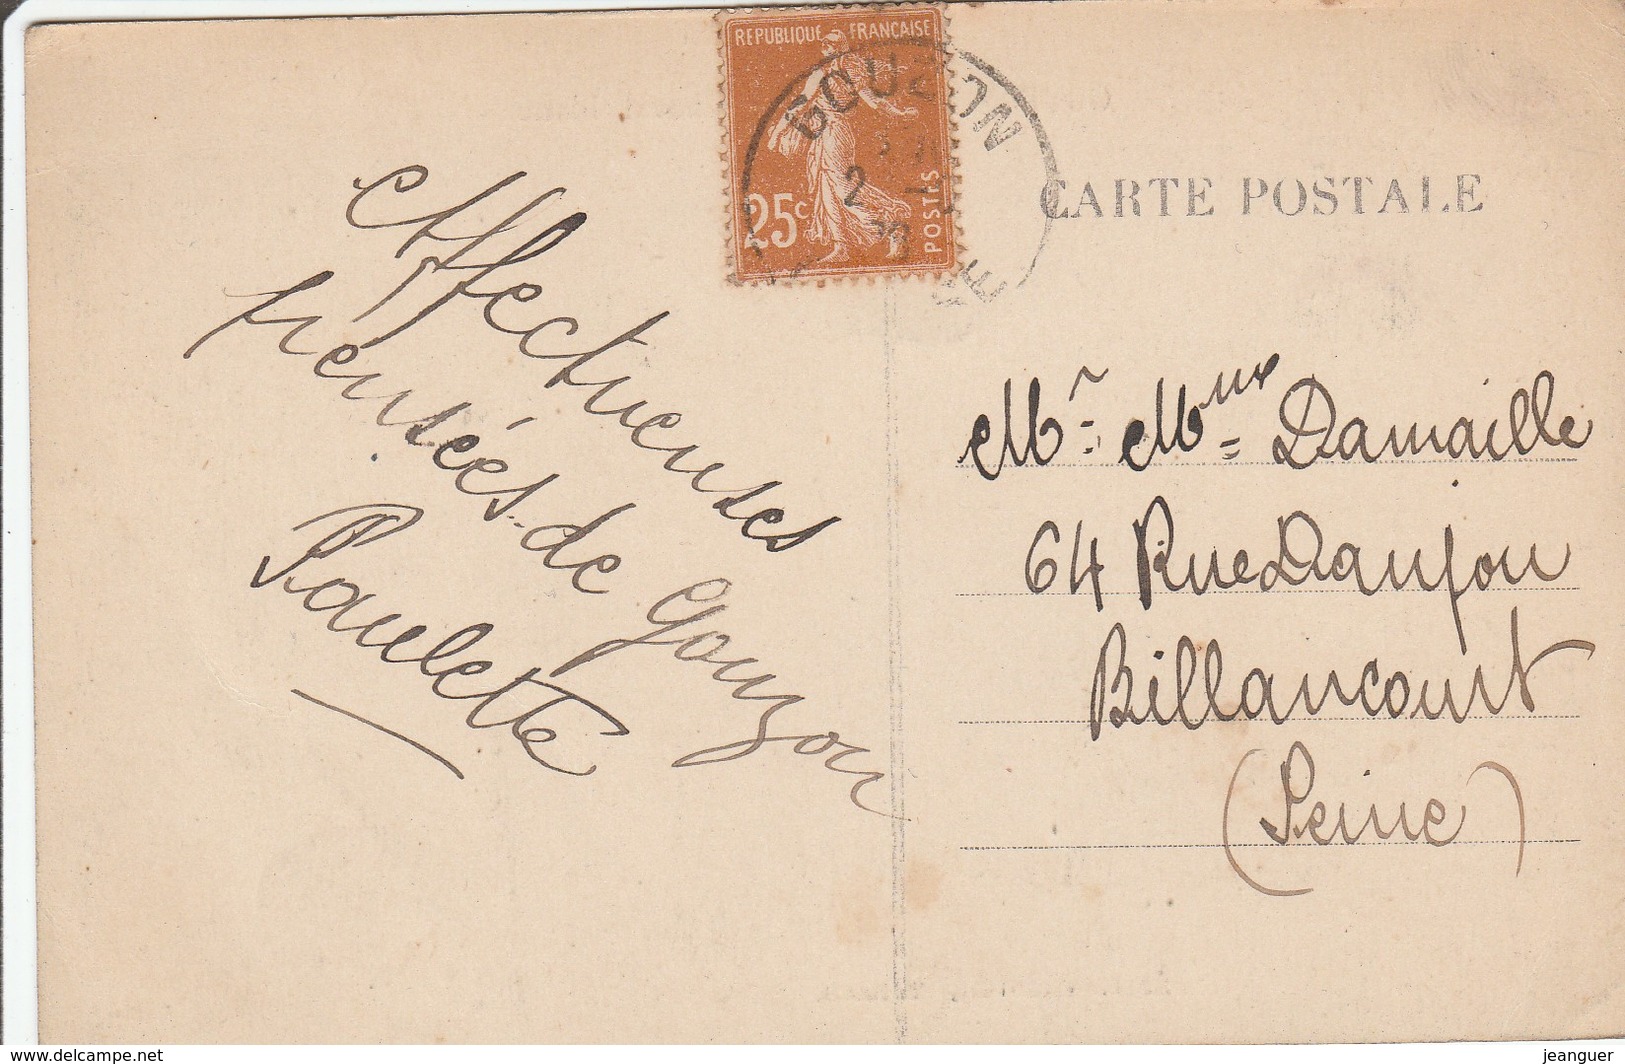 REPUBLIQUE FRANCAISE
25c
POSTES
GOUZON
2
CARTE POSTALE
Affectueuses
pensées de Gouzon
Paulette
Mr. Mme Damaille
64 Rue Danjou
Billancourt
(Seine)
www.delcampe.net
jeanguer